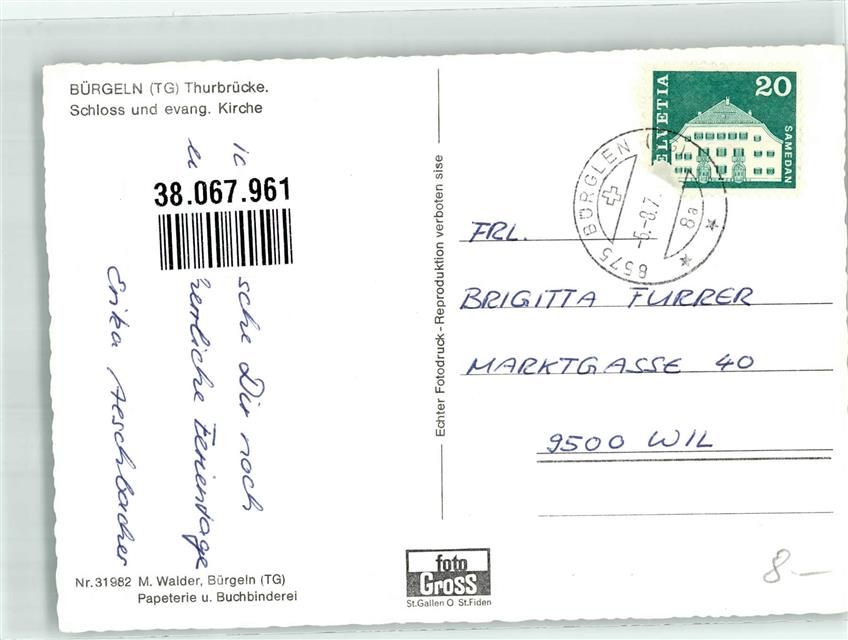 BÜRGELN (TG) Thurbrücke.
Schloss und evang. Kirche
sche Dir noch
herrliche Ferientage
Erika Aeschbacher
38.067.961
Nr. 31982 M. Walder, Bürgeln (TG)
Papeterie u. Buchbinderei
Echter Fotodruck - Reproduktion verboten sise
foto
Gross
St.Gallen O St.Fiden
HELVETIA
20
SAMEDAN
8575 BÜRGLEN (TG)
-6.-8.7.
8a
FRL.
BRIGITTA FURRER
MARKTGASSE 40
9500 WIL
8.—